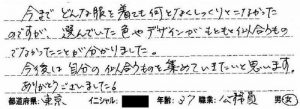 今までどんな服を着ても何となくしっくりとこなかった
のですが、選んでいた色やデザインがもともと似合うもの
でなかったことが分かりました。
今後は自分の似合うものを集めていきたいと思います。
ありがとうございました。
都道府県：東京 イニシャル： 年齢：37 職業：公務員 男・女